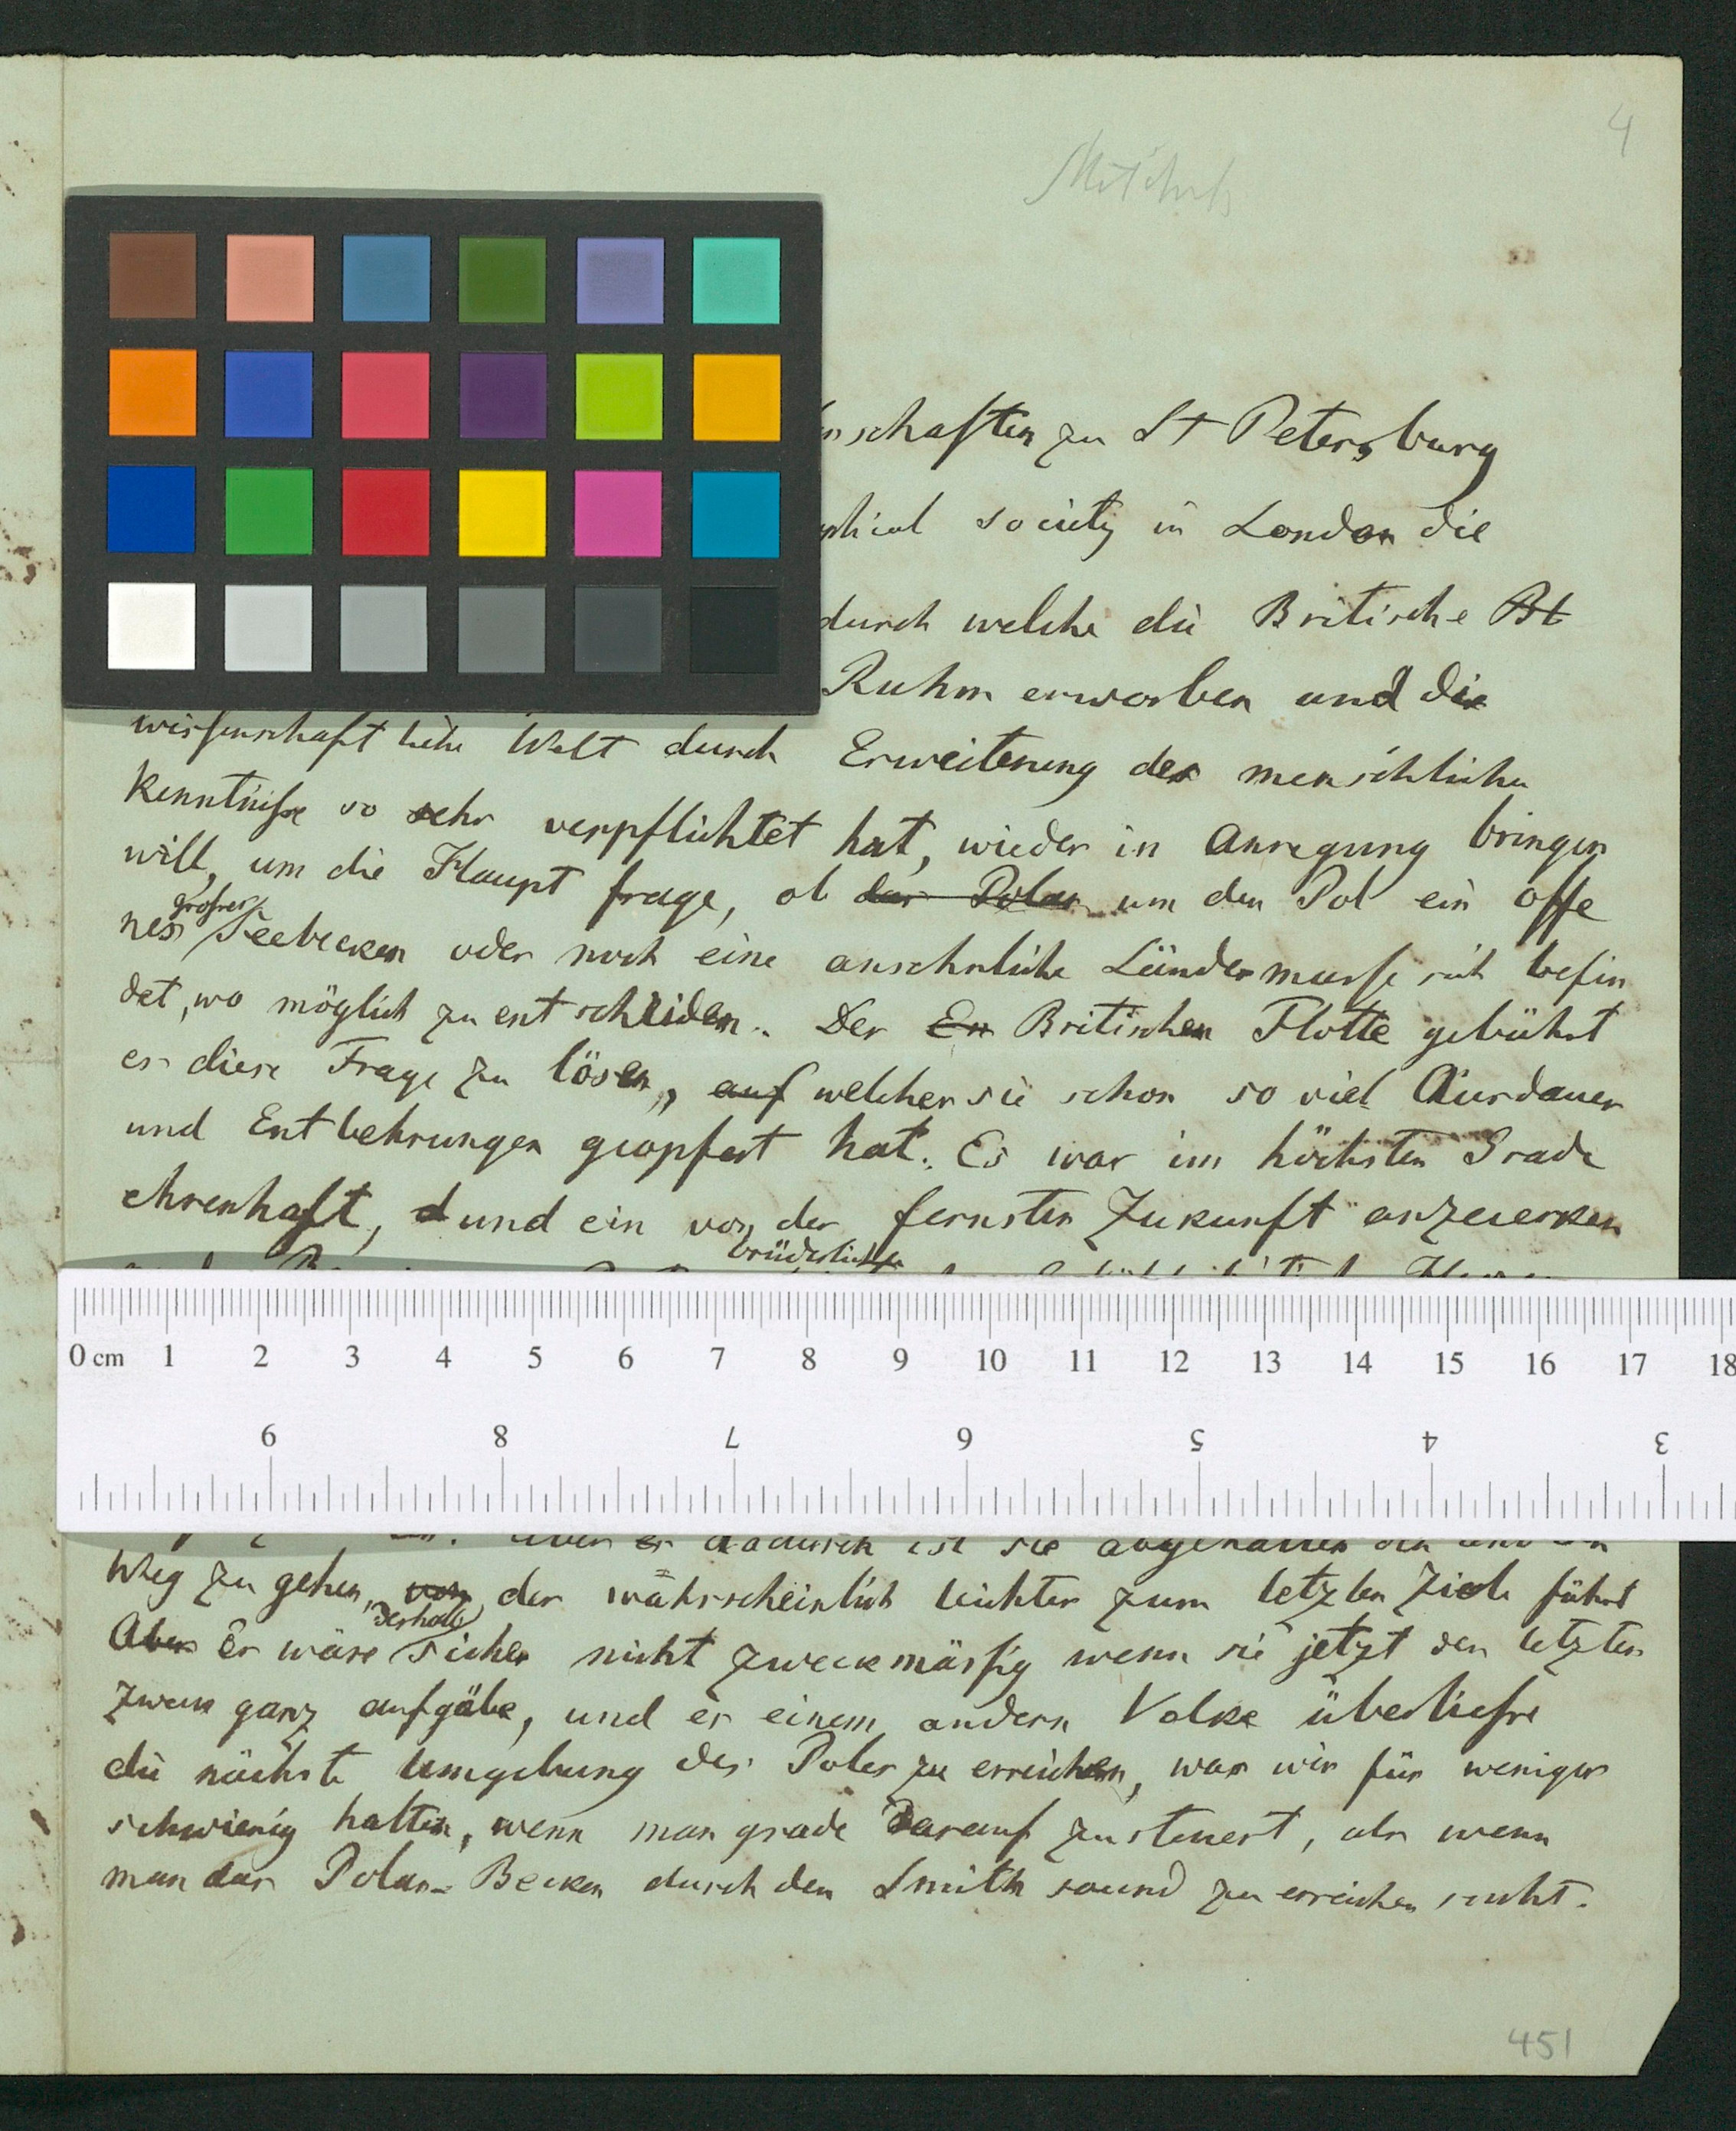 4
nschaften zu St Petersburg
phical society in London die
durch welche die Britische Bt
Ruhm erworben und die
wissenschaftliche Welt durch Erweiterung der menschlichen
Kenntnisse so sehr verpflichtet hat, wieder in Anregung bringen
will, um die Haupt frage, ob der Polar um den Pol ein offe
grosses
nes Seebecken oder noch eine ansehnliche Ländermasse sich befin
det, wo möglich zu entscheiden. Der En Britischen Flotte gebührt
es diese Frage zu lösen, auf welcher sie schon so viel Ausdauer
und Entbehrungen geopfert hat. Es war im höchsten Grade
ehrenhaft, d und ein von der fernsten Zukunft anzuerken
brüderliche
0 cm 1 2 3 4 5 6 7 8 9 10 11 12 13 14 15 16 17 18
9 8 7 6 5 4 3
aber er dadurch ist sie abgehalten den
Weg zu gehen, von der wahrscheinlich leichter zum letzten Ziele führt
deshalb
Aber Es wäre sicher nicht zweckmässig wenn sie jetzt den letzten
Zweck ganz aufgäbe, und es einem andern Volke überliesse
die nächste Umgebung des Poles zu erreichen, was wir für weniger
schwierig halten, wenn man grade darauf zusteuert, als wenn
man das Polar-Becken durch den Smith sound zu erreichen sucht.
451